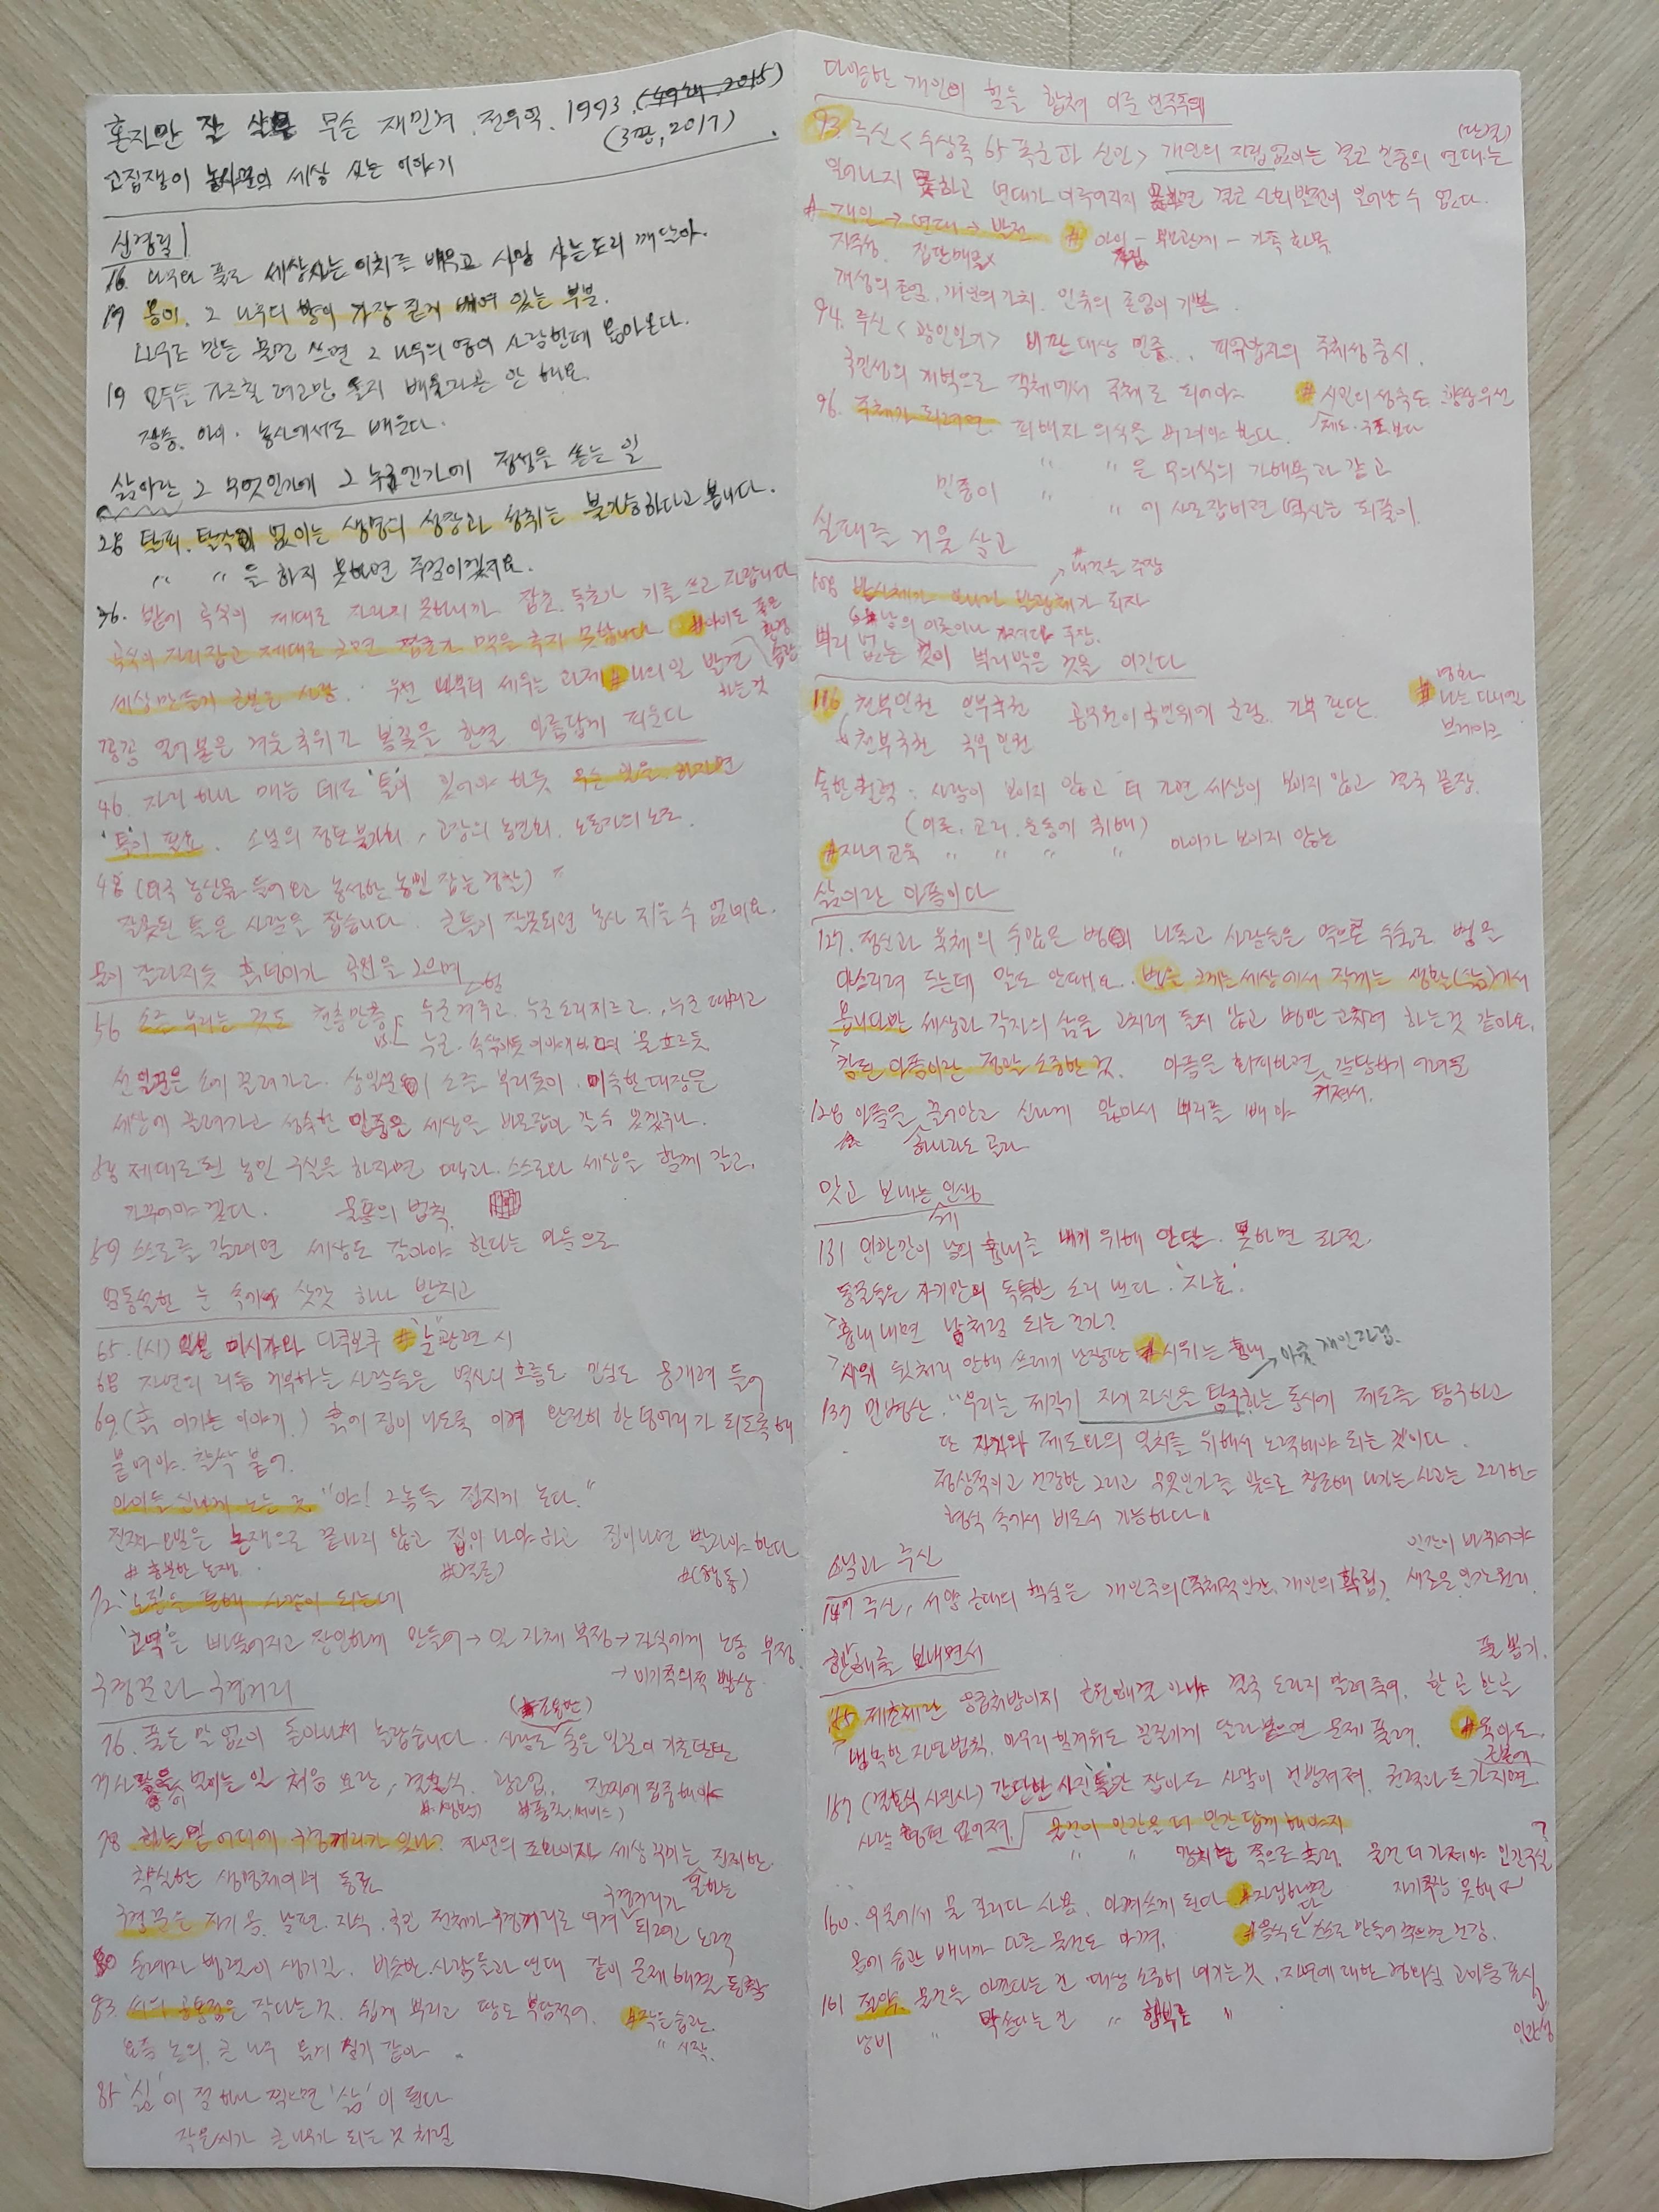 혼자만 잘 살믄 무슨 재민겨. 전우익. 1993.
(3판, 2017)
고집쟁이 농사꾼의 세상 사는 이야기
신경림
16. 나무와 풀로 세상사는 이치를 배우고 사람 사는 도리 깨달아.
19 옹이. 그 나무의 향이 가장 짙게 배어 있는 부분.
나무로 만든 물건 쓰면 그 나무의 영이 사람한테 옮아온다.
19 모두들 가르칠려고만 들지 배울라곤 안 해요.
짐승. 아이. 농사에서도 배운다.
삶이란 그 무엇인가에 그 누구엔가에 정성을 쏟는 일
28 탈피. 탈각이 없이는 생명의 성장과 성취는 불가능하다고 봅니다.
" " 을 하지 못하면 주검이겠지요.
36. 밭에 곡식이 제대로 자라지 못하니까 잡초, 독초가 기를 쓰고 자랍니다
곡식이 자리잡고 제대로 크면 잡초가 맥을 추지 못합니다. #아이도 좋은 환경 습관
세상 만들기 근본은 사람. 우선 나부터 세우는 과제 #나의 일 발견 하는 것
꽁꽁 얼어붙은 겨울 추위가 봄꽃을 한결 아름답게 피운다
46. 자리 하나 매는 데도 '틀'이 있어야 하듯 무슨 일을 하자면
'틀'이 필요. 고장의 농민회. 노동자의 노조.
48 (외국 농산물 들어오고 농성한 농민 잡는 경찰)
잘못된 틀은 사람을 잡습니다. 큰틀이 잘못되면 농사 지을 수 없네요.
물이 갈라지듯 흙덩이가 곡선을 그으며
56 소를 부리는 것도 천층만층 누군 겨주고. 누군 소리지르고., 누군 때리고
vs 누군. 속삭이듯 이야기하며 물 흐르듯
선일꾼은 소에 끌려가고. 상일꾼이 소를 부리듯이. 미숙한 대장은
세상에 끌려가고 성숙한 민중은 세상을 바로잡아 갈 수 있겠구나.
58 제대로 된 농민 구실을 하자면 땅과. 스스로와 세상을 함께 갈고.
가꾸어야 겠다.
59 스스로를 갈려면 세상도 갈아야 한다는 마음으로
엄동설한 눈 속에 삿갓 하나 받치고
65. (시) #'눈'관련 시
68 자연의 리듬 거부하는 사람들은 역사의 흐름도 민심도 옹개려 들어
69. (흙 이기는 이야기.) 흙에 집이 나도록 이겨 완전히 한 덩어리가 되도록 해
붙여야. 찰싹 붙어.
아이들 신나게 노는 곳 "야! 그놈들 집지게 논다."
진짜 모밭은 논쟁으로 끝나지 않고 집이 나야 하고 집이 나면 박차야 한다
# 충분한 논쟁. #(결론) #(행동)
72. '노동'을 통해 사람이 되는데
'고역'은 비뚤어지고 잔인하게 만들어→일 자체 부정→자식에게 노동 부정.
→이기주의적 발상
구경꾼과 구경거리
76. 풀도 말 없이 돋아나서 놀랍습니다. 사람도 숨은 일꾼이 기초 단단
(#조용한)
77 사람들이 벌이는 일 처음 요란, 결혼식. 광고업. 알맹이에 집중해야
78 하늘 밑 어디에 구경거리가 있나? 자연의 조화이자 세상 꾸미는 진지한
착실한 생명체이며 동료
구경꾼은 자기 몸. 남편. 자식. 국민 전체가 구경거리로 여겨 되려는 노력
80 비슷한 사람들과 연대 같이 문제 해결
83. 씨의 공통점은 작다는 것. 쉽게 뿌리고 땅도 부담적어. #작은 습관.
" 시작.
요즘 논의. 큰 나무 옮겨 심기 같아.
85 '심'이 점 하나 찍으면 '삶'이 된다
작은씨가 큰 나무가 되는 것 처럼
다양한 개인의 힘을 합쳐 이룬 민주주의
93. 루신 <수상록 65 폭군과 신민> 개인의 자립 없이는 결코 민중의 연대는
(단결)
일어나지 못하고 연대가 이루어지지 못하면 결코 사회발전이 일어날 수 없다.
# 개인→연대→발전 # 아이 - 부모관계 - 가족 화목
자주성. 집단매몰x
개성의 존엄, 개인의 가치. 인축의 존엄의 기본.
94. 루신 <광인일기> 비판대상 민중.. 피압박자의 주체성 중시.
국민성의 개혁으로 객체에서 주체로 되어야 #시민의 성숙도 항상 우선
제도. 구조 보다
96. 주체가 되려면 피해자 의식을 버려야 한다.
" " 은 무의식의 가해욕과 같고
민중이 " " 에 사로잡히면 역사는 되풀이.
실패를 거울 삼고
108 반사체가 아니라 발광체가 되자
→내것을 주장
남의 이론이나 가져다 주장.
뿌리 없는 것이 뿌리박은 것을 이긴다
116 천부인권 인부국권 공무원이 국민위에 군림. 가부 판단. # 영화 나는 다니엘 브레이크
천부국권 국부인권
속한철벽: 사람이 보이지 않고 더 가면 세상이 보이지 않고 결국 끝장.
(이론, 교리. 운동에 취해)
#자녀교육 " " " " 아이가 보이지 않는
삶이란 아픔이다
127. 정신과 육체의 수많은 병이 나돌고 사람들은 약으로 수술로 병을
다스리려 드는데 말도 안돼요. 병은 크게는 세상에서 작게는 생활(삶)에서
옵니다만 세상과 각자의 삶을 고치려 들지 않고 병만 고치려 하는 것 같아요.
참된 아픔이란 정말 소중한 것. 아픔은 회피하면 커져서. 감당하기 어려운
128 아픔을 끌어안고 신나게 앓아서 뿌리를 빼야
하나라도 골라
맞고 보내는 인생
131 인간같이 남의 흉내를 내기 위해 안달. 못하면 좌절.
동물들은 자기만의 독특한 소리 낸다. '자효'.
>흉내 내면 남처럼 되는 건가?
>시위 뒷처리 안해 쓰레기 난장판 #시위는 흉내→아직 개인자립.
137 민병산. "우리는 제각기 자기 자신을 탐구하는 동시에 제도를 탐구하고
또 자기와 제도와의 일치를 위해서 노력해야 되는 것이다.
정상적이고 건강한 그리고 무엇인가를 앞으로 창조해 나가는 사고는 그러한
형식 속에서 비로서 가능하다"
소설과 루신
147 루신, 서양 근대의 핵심은 개인주의(주체적인간. 개인의 확립). 새로운 인간원리.
인간이 바뀌어야
한해를 보내면서
제초제란 응급처방이지 근본해결 아냐 결국 도라지 말려죽여. 한 골 한골
풀 뽑기.
범욕한 자연법칙. 아무리 힘겨워도 끈질기게 달라붙으면 문제 풀려. #육아도.
167 (결혼식 사진사) 간단한 사진 잡아도 사람이 건방져져. 권력과 돈 가지면.
사람 형편 없어져. 물건이 인간을 더 인간답게 해야지
" " 망치는 쪽으로 흘러. 물건 더 가져야 인간구실?
160. 우물에서 물 길러다 사용. 아껴쓰게 된다 #자립하면 자기주장 못해
몸에 습관 배니까 다른 물건도 아껴. #음식도 스스로 만들어 먹으면 건강.
161 절약. 물건을 아낀다는 건 대상 소중히 여기는 것, 자연에 대한 경외심 고마움 표시
낭비 " 막 쓴다는 건 " 행복도 "
인간성